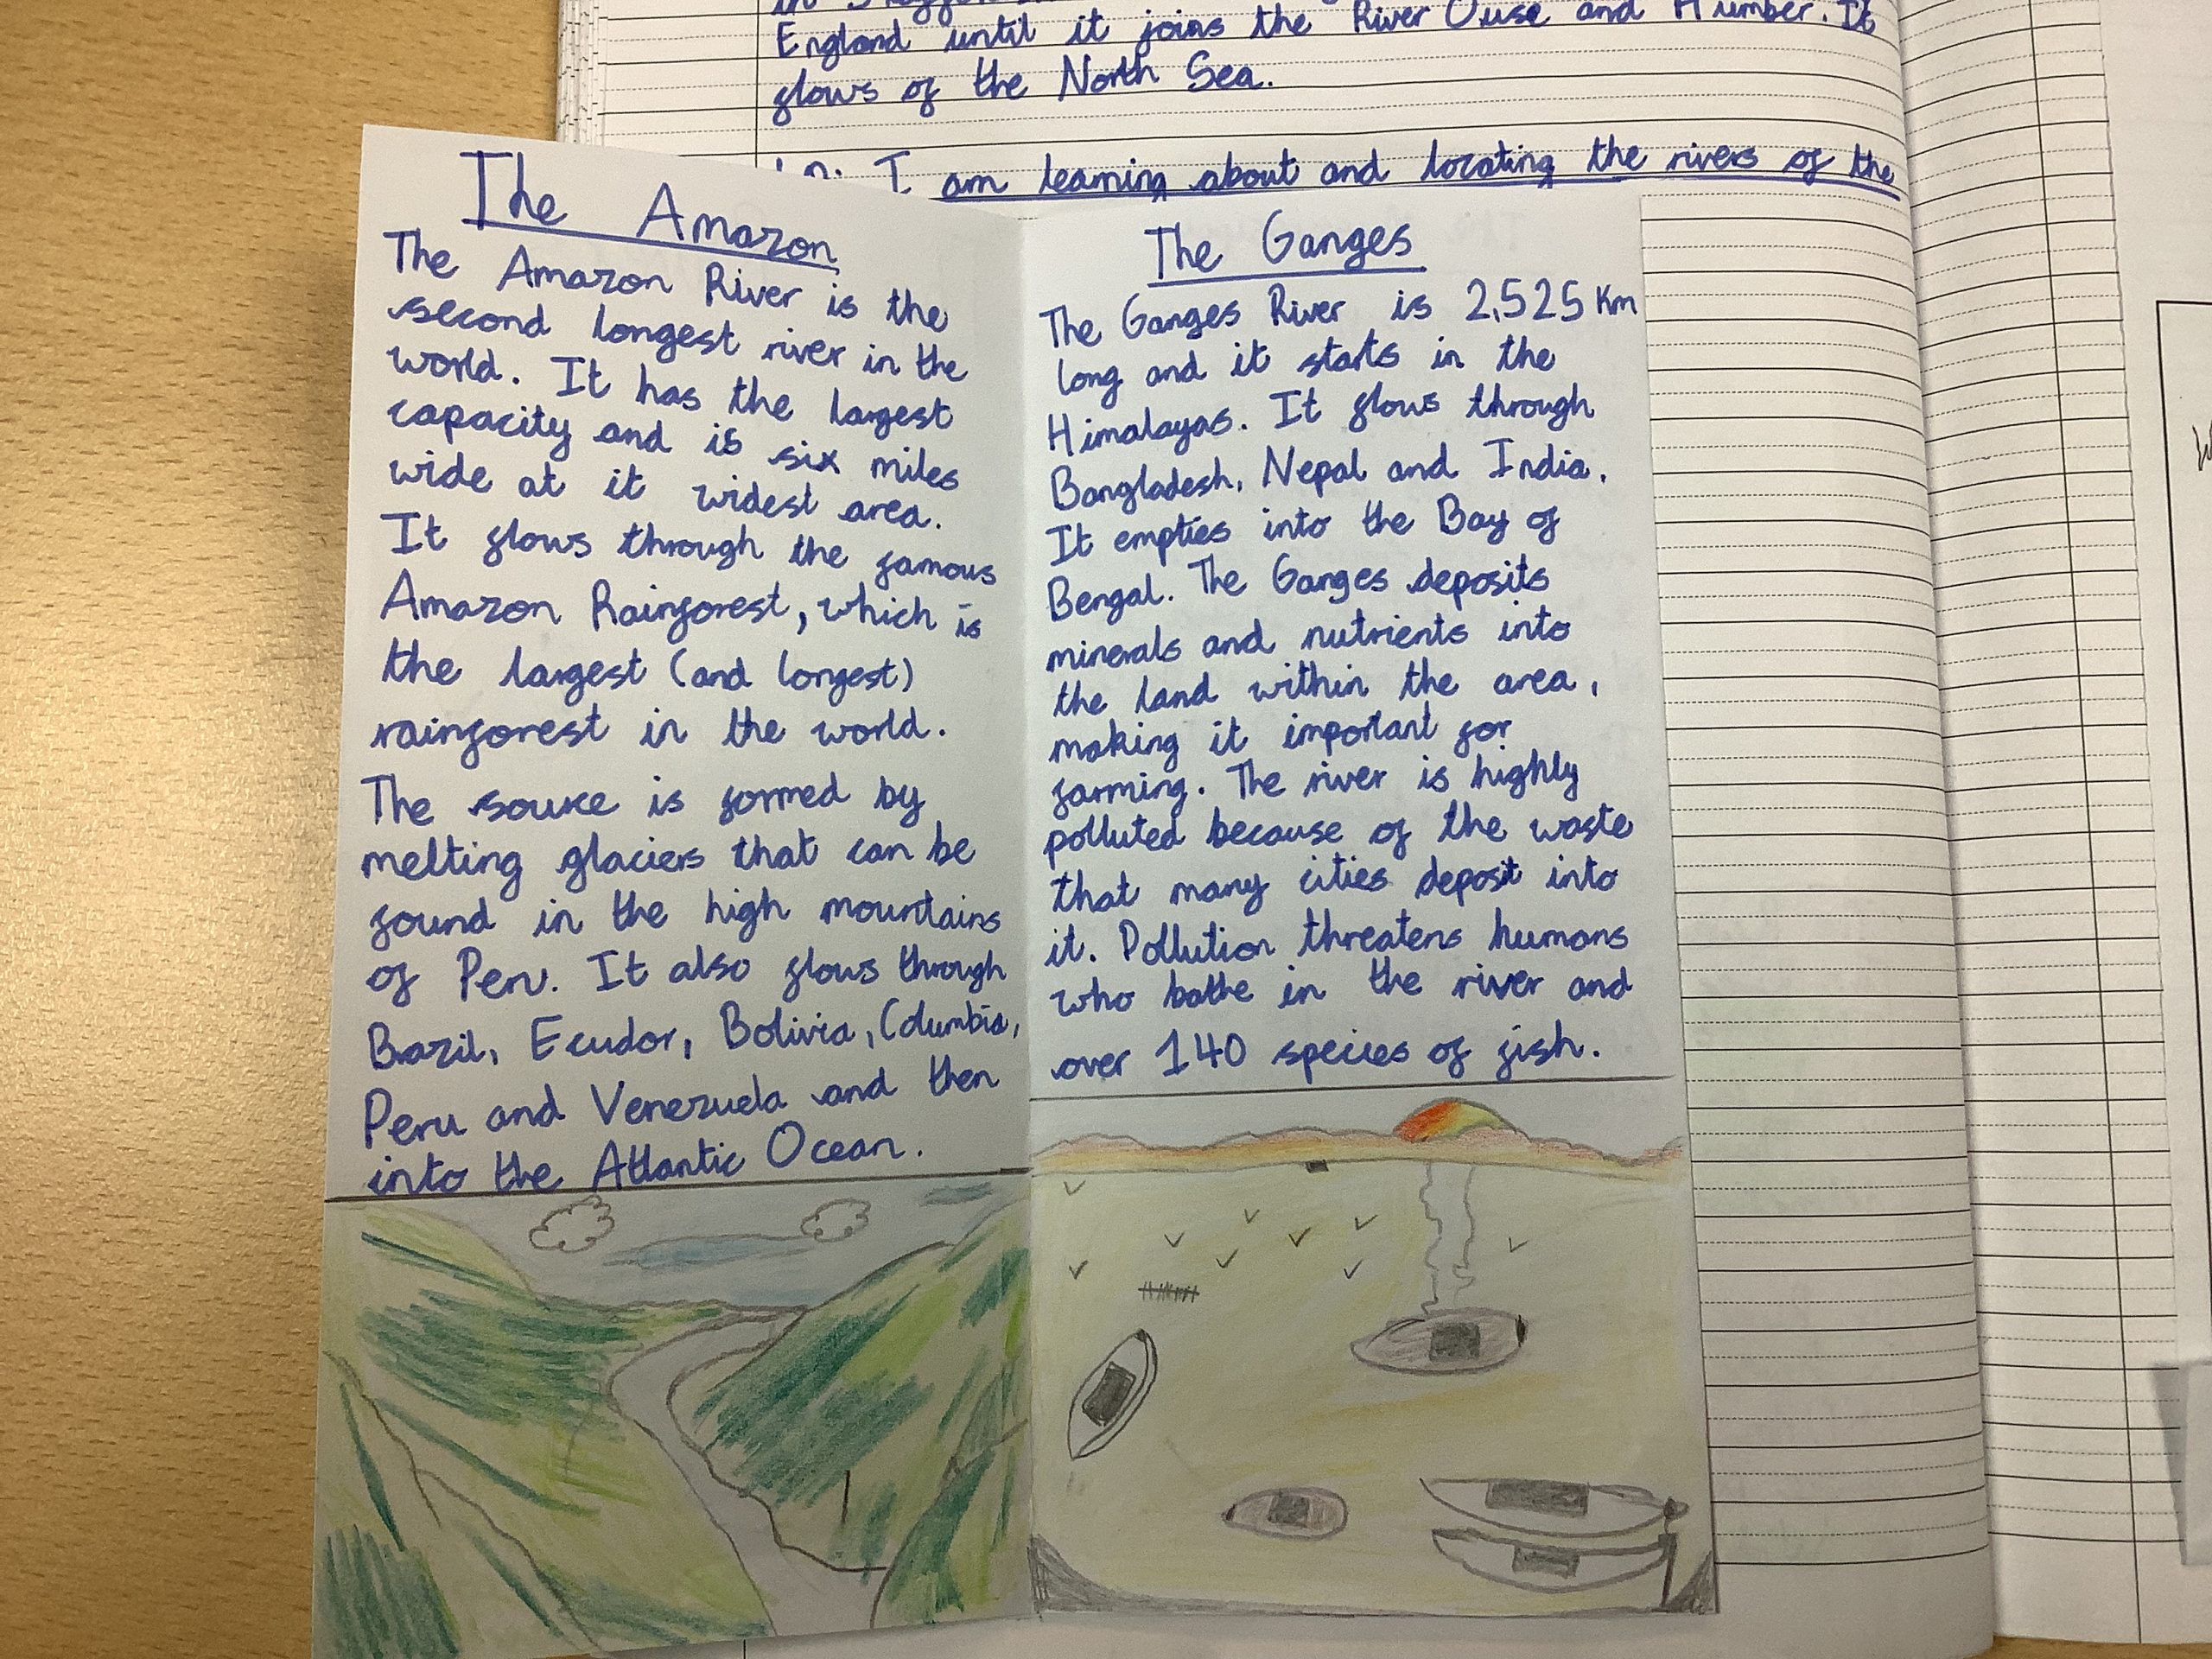 England until it joins the River Ouse and Humber. It
flows of the North Sea.
I am learning about and locating the rivers of the
The Amazon
The Amazon River is the
second longest river in the
world. It has the largest
capacity and is six miles
wide at it widest area.
It flows through the famous
Amazon Rainforest, which is
the largest (and longest)
rainforest in the world.
The source is formed by
melting glaciers that can be
found in the high mountains
of Peru. It also flows through
Brazil, Ecudor, Bolivia, Columbia,
Peru and Venezuela and then
into the Atlantic Ocean.
The Ganges
The Ganges River is 2,525 Km
long and it starts in the
Himalayas. It flows through
Bangladesh, Nepal and India.
It empties into the Bay of
Bengal. The Ganges deposits
minerals and nutrients into
the land within the area,
making it important for
farming. The river is highly
polluted because of the waste
that many cities deposit into
it. Pollution threatens humans
who bathe in the river and
over 140 species of fish.